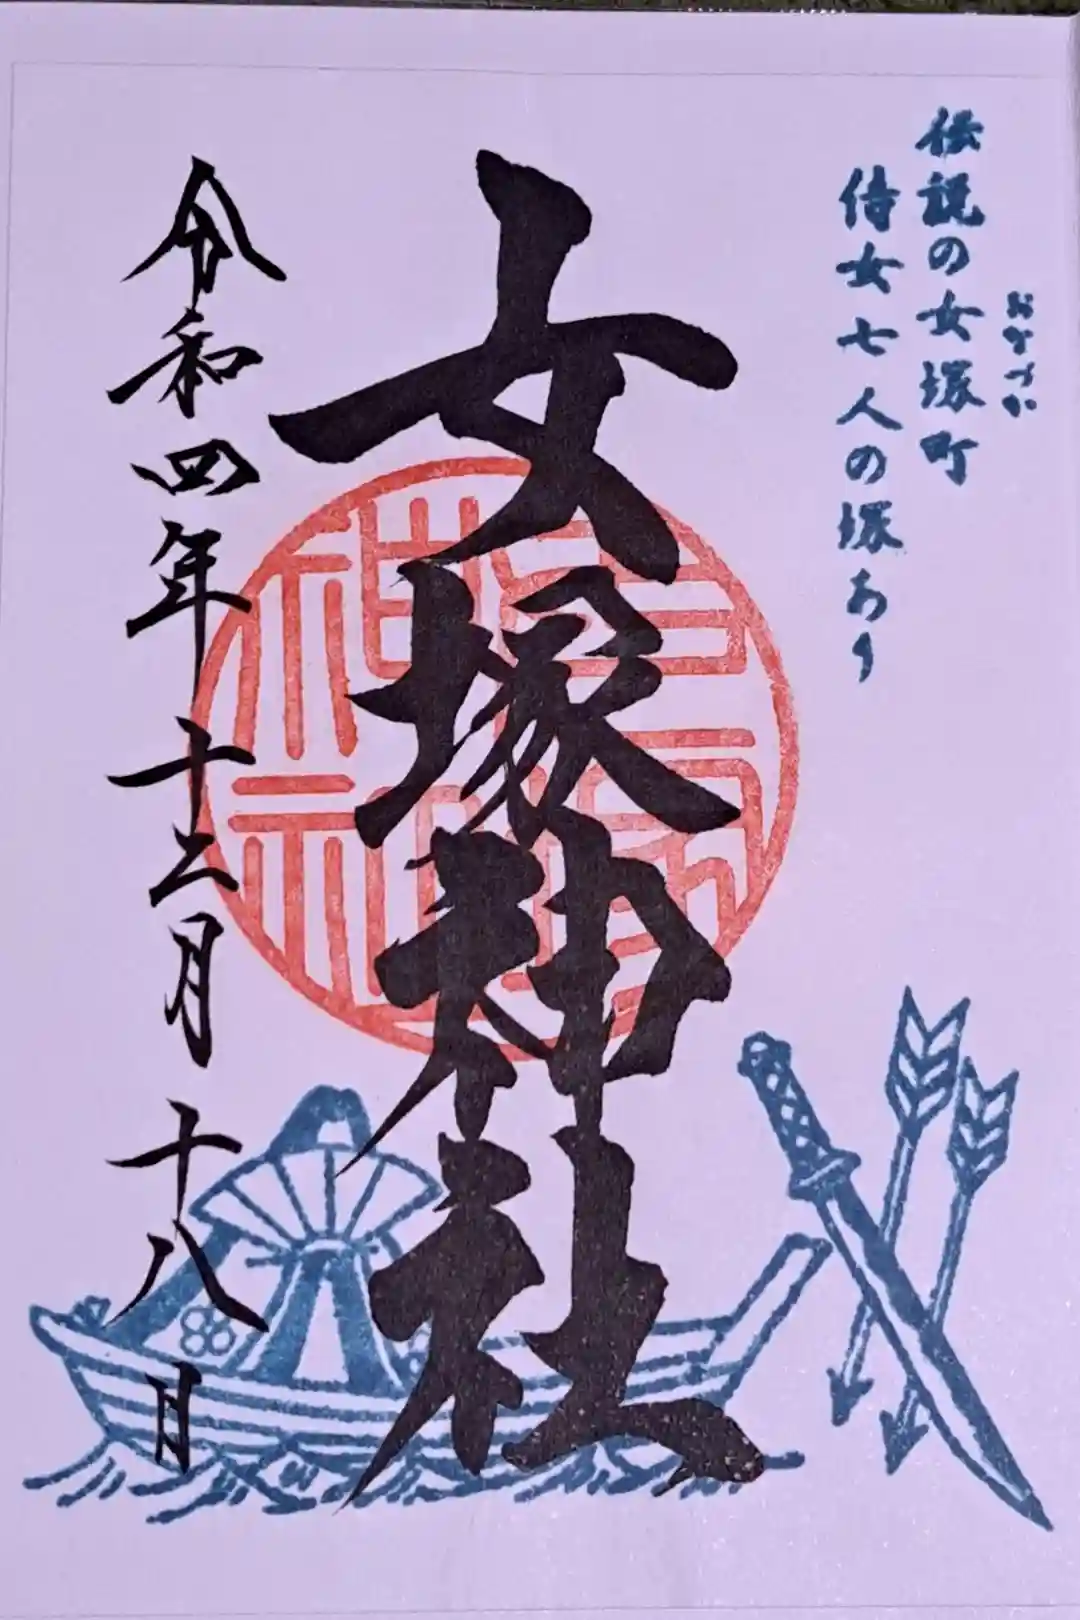 伝説の女塚町
おなづか
侍女七人の塚あり
女塚神社
令和四年十二月十八日